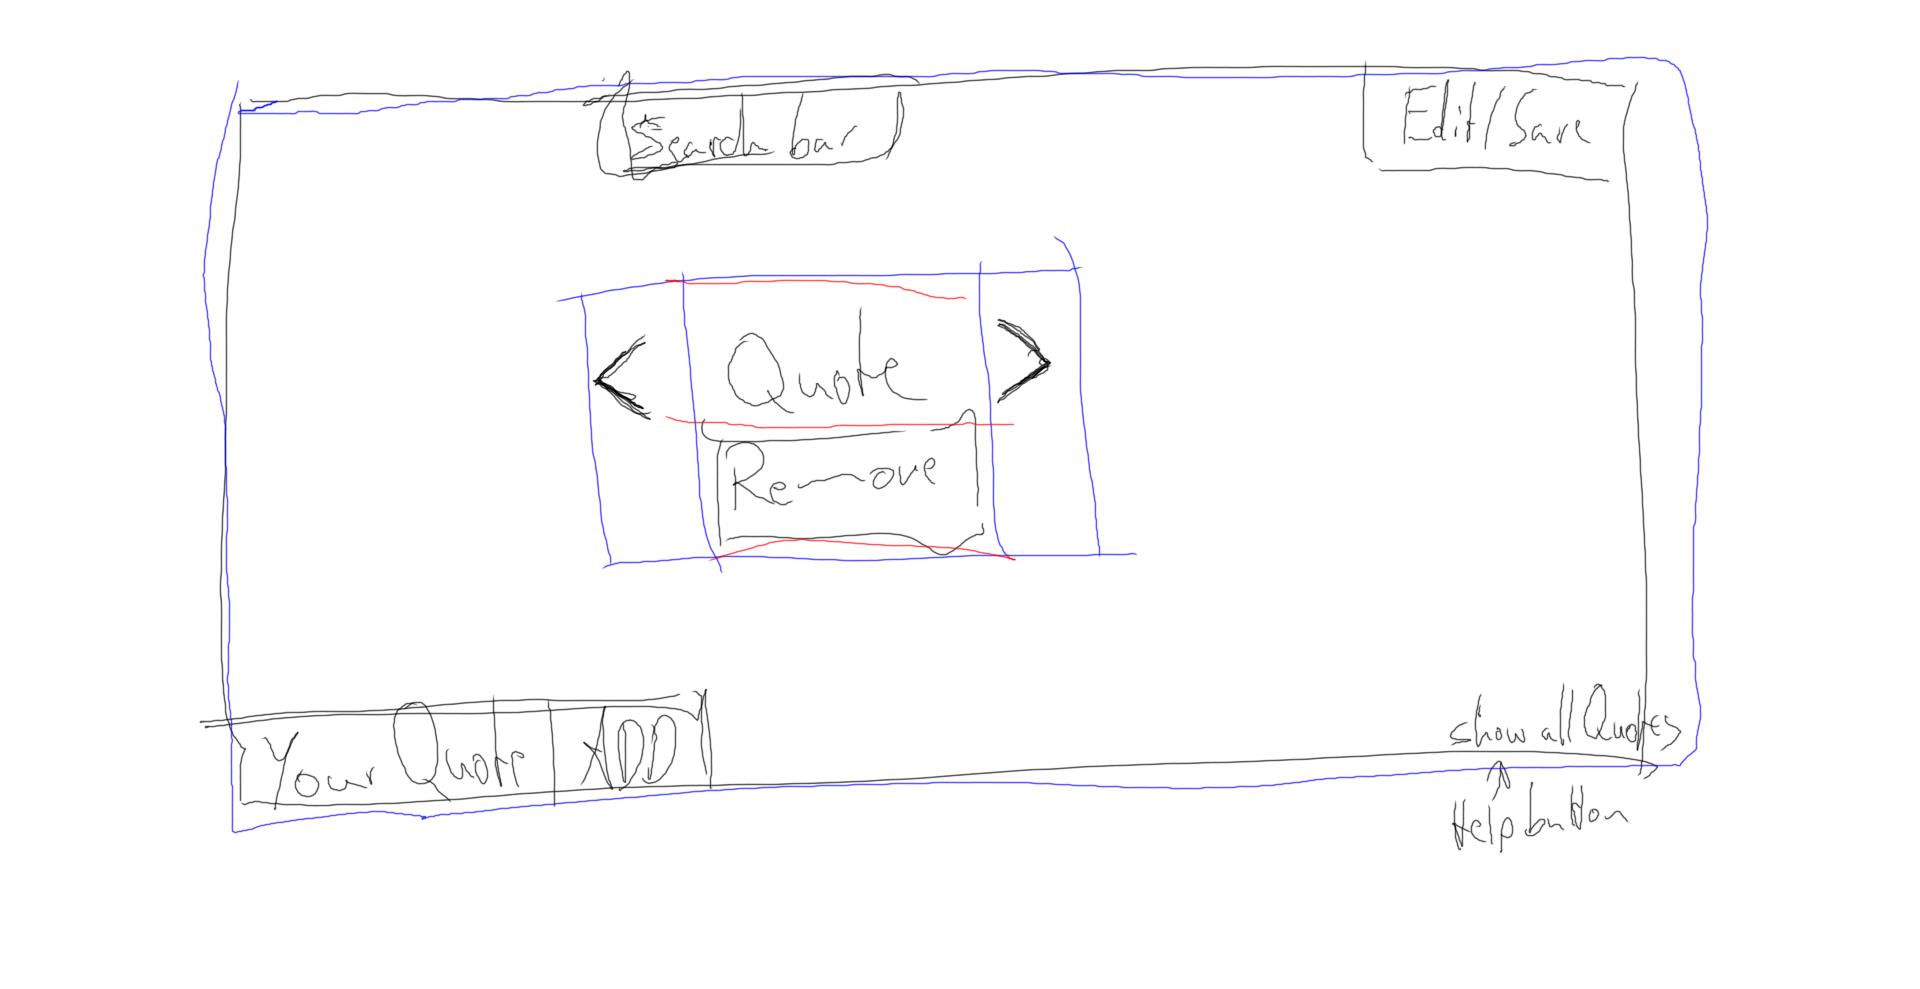 Search bar
Edit/Save
< Quote >
Remove
Your Quote ADD
show all Quotes
Help button